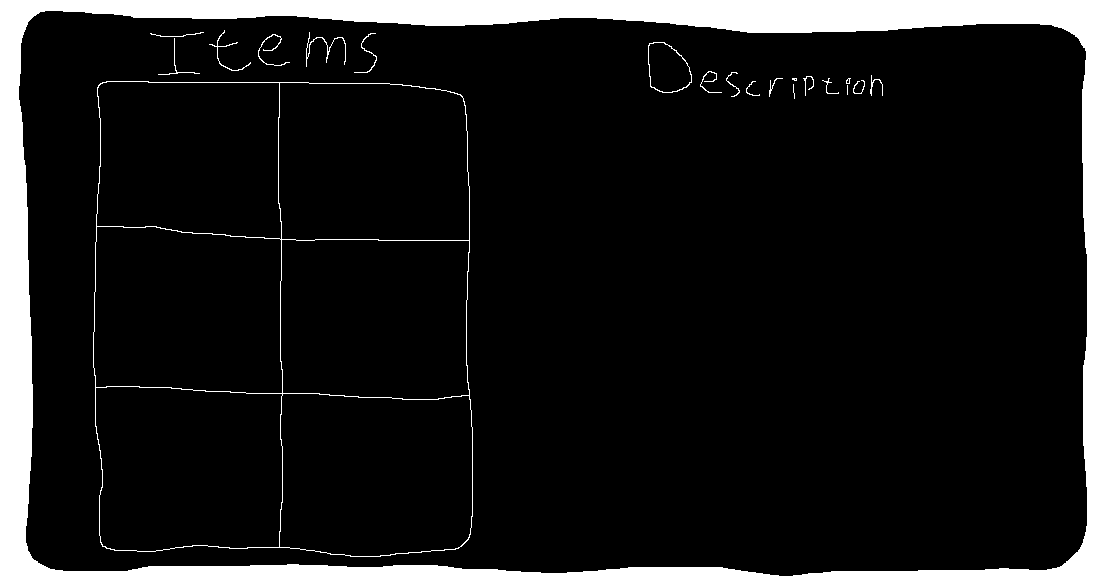 Items
Description